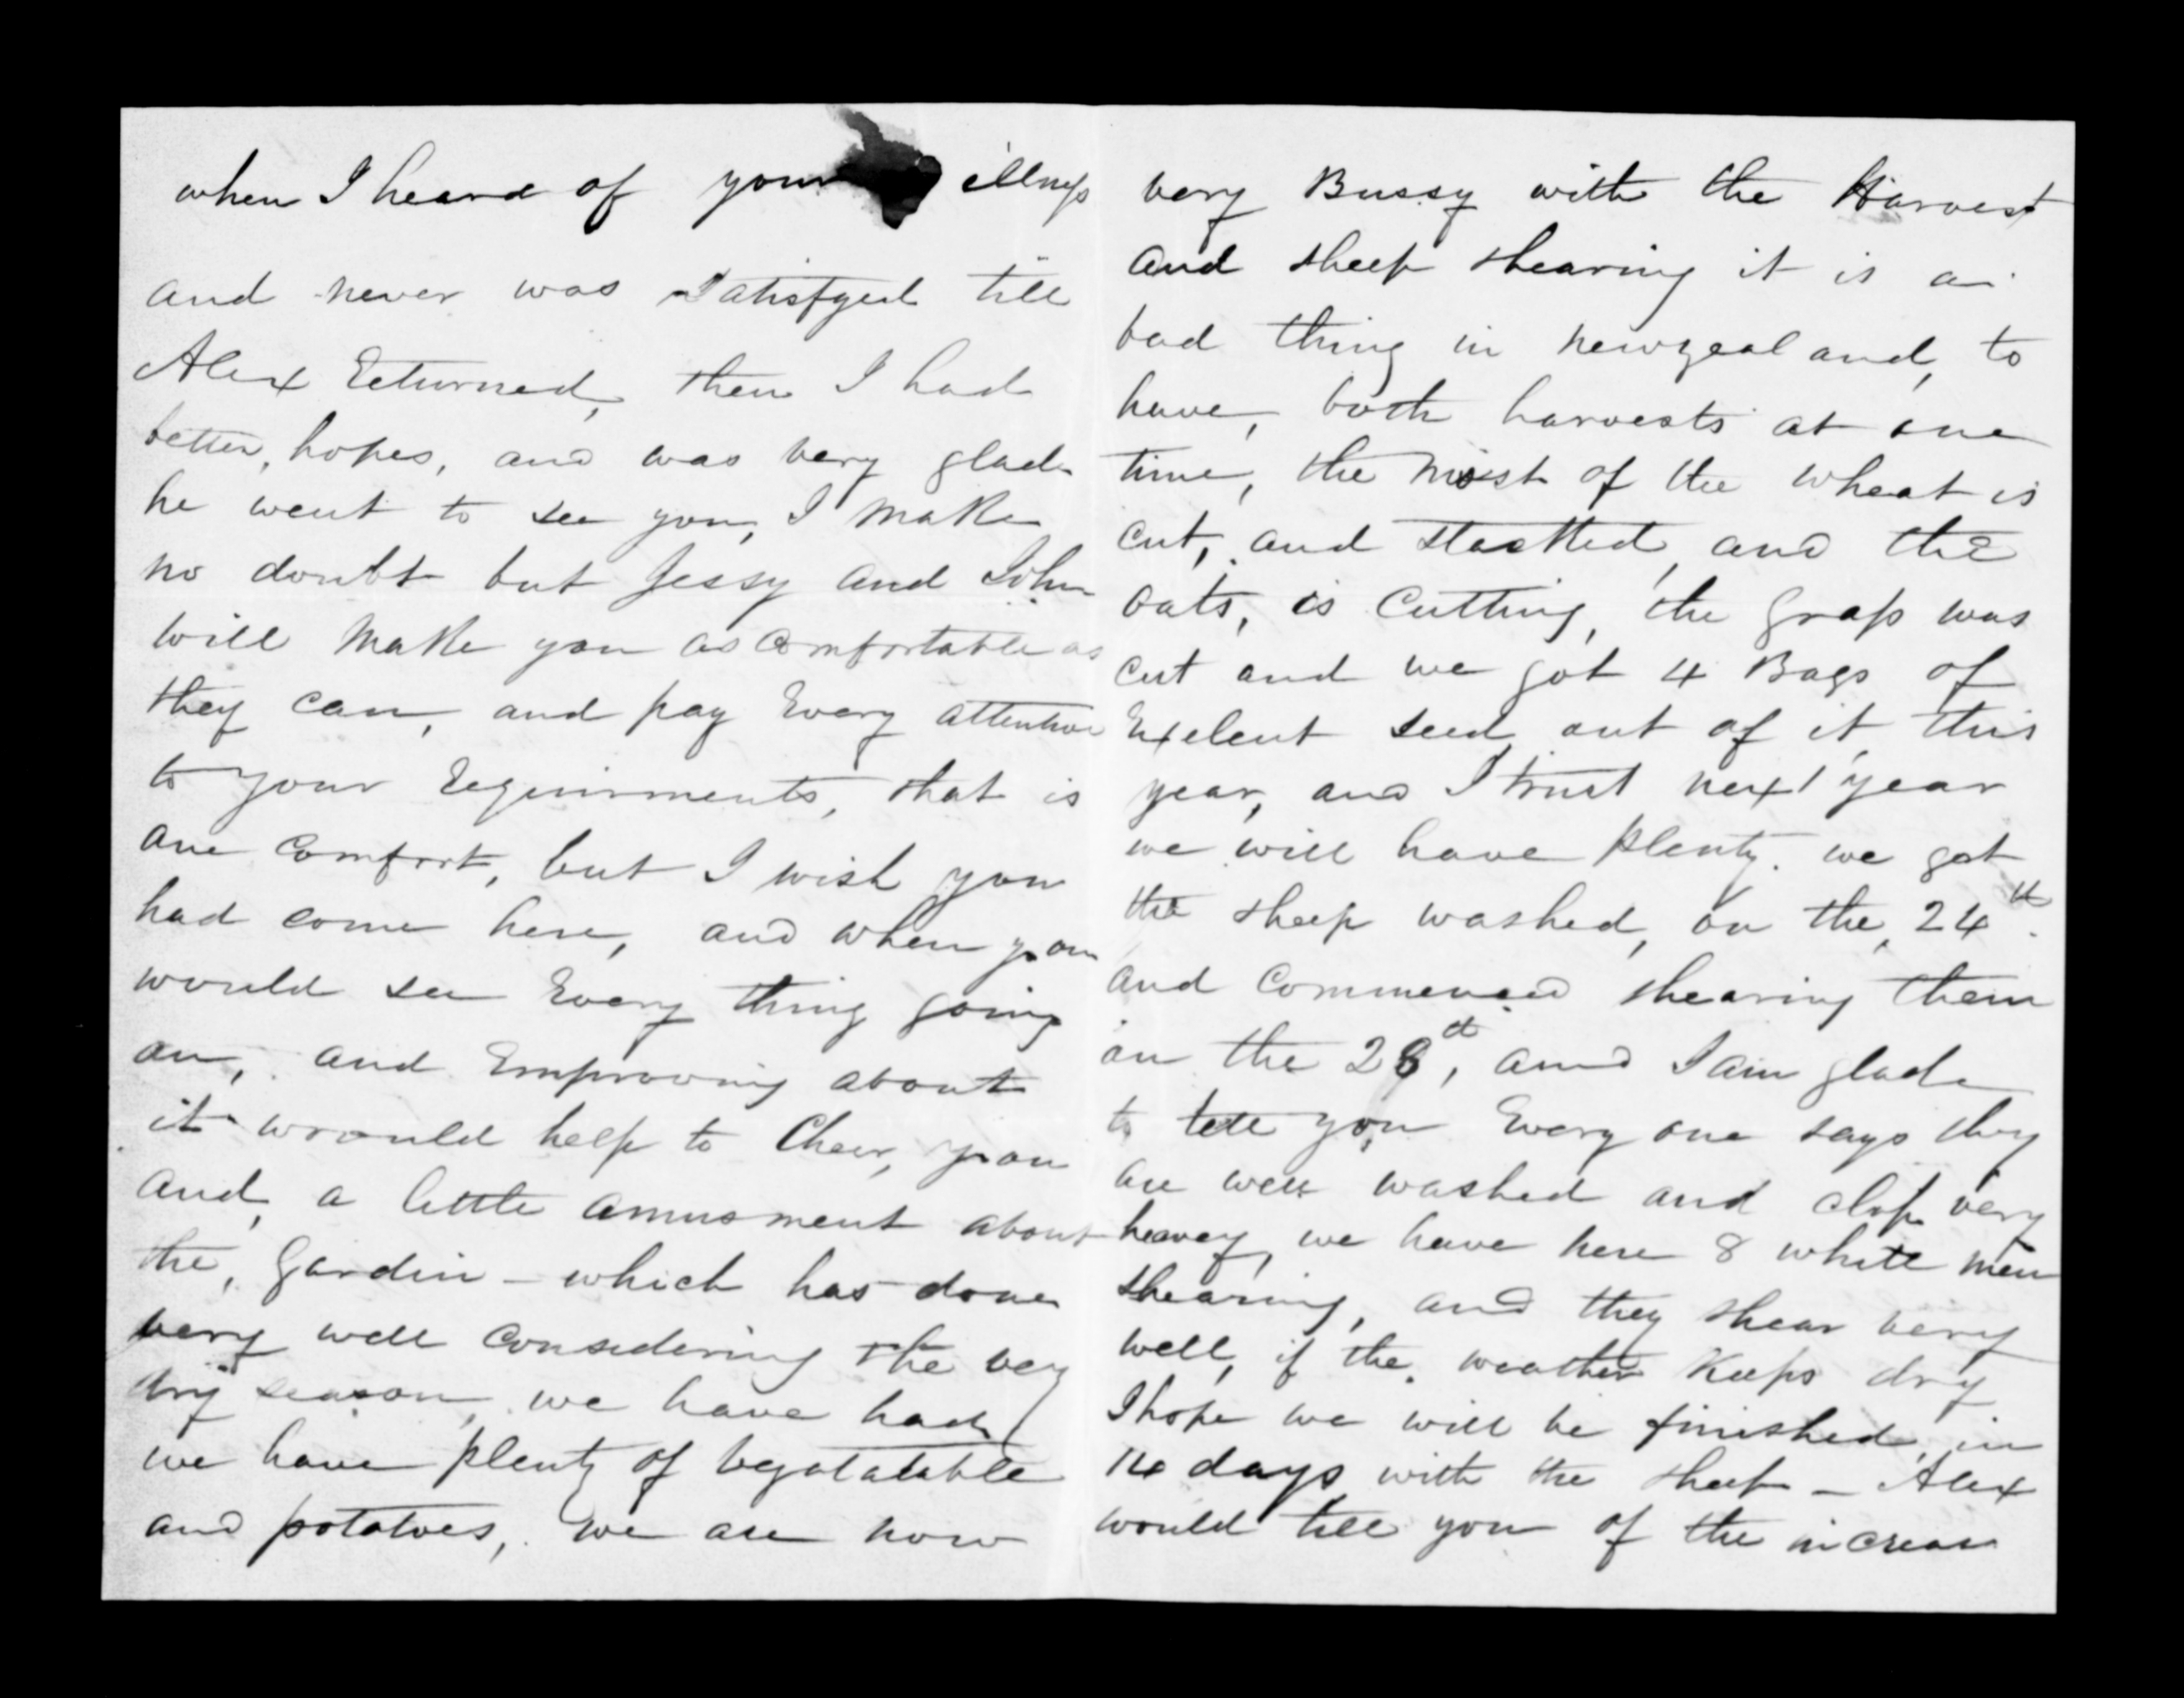 when I heard of your illness
and never was Satisfyed till
Alex Returned, then I had
better, hopes, and was very glad
he went to see you, I make
no doubt but Jessy and John
will make you as comfortable as
they can, and pay Every attention
to your Requirments, that is
one comfort, but I wish you
had come here, and when you
would see Every thing going
on, and Emprooving about
it would help to Cheer, you
and, a little amusment about
the, Gardin - which has done
very well considering the very
dry season, we have had
we have plenty of vegatatable
and potatoes, we are now
very Bussy with the Harvest
and sheep shearing it is a
bad thing in newzealand, to
have, both harvests at one
time, the most of the wheat is
cut, and stactted, and the
oats, is Cutting, the Grass was
cut and we got 4 Bags of
Exelent seed out of it, this
year, and I trust next year
we will have plenty. we got
the sheep washed, on the, 24th.
and Commenced shearing them
on the 28th, and I am glad
to tell you Every one says they
are well washed and clip very
heavey, we have here 8 white men
shearing, and they shear very
well, if the, weather Keeps dry
I hope we will be finished, in
14 days with the sheep - Alex
would tell you of the increas